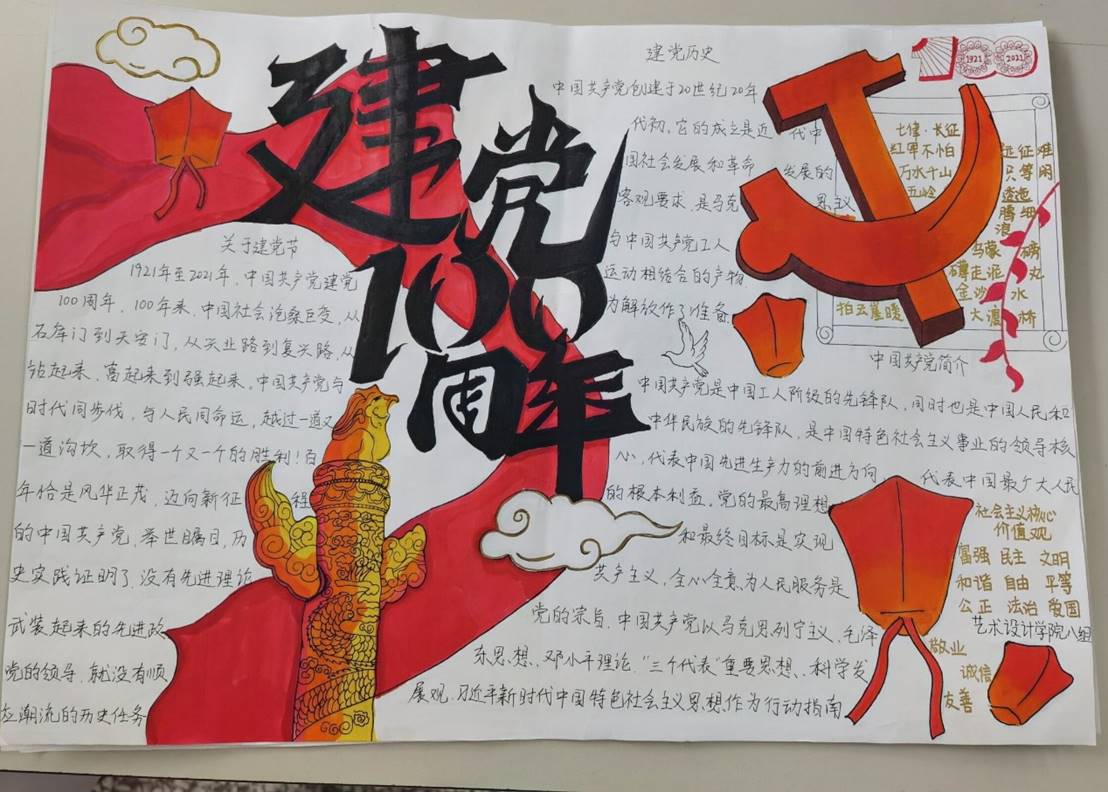 建党
100
周年
关于建党节
1921年至2021年，中国共产党建党
100周年，100年来，中国社会沧桑巨变，从
石库门到天安门，从兴业路到复兴路，从
站起来、富起来到强起来，中国共产党与
时代同步伐，与人民同命运，越过一道又
一道沟坎，取得一个又一个的胜利！百
年恰是风华正茂，迈向新征程
的中国共产党，举世瞩目，历
史实践证明了没有先进理论
武装起来的先进政
党的领导，就没有顺
应潮流的历史任务
建党历史
中国共产党创建于20世纪20年
代初，它的成立是近代中
国社会发展和革命发展的
客观要求，是马克思主义
与中国共产党工人
运动相结合的产物
为解放作了准备
100
1921
2021
七律·长征
红军不怕远征难
万水千山只等闲
五岭逶迤
腾细
浪
乌蒙磅
礴走泥丸
金沙水
拍云崖暖
大渡桥
中国共产党简介
中国共产党是中国工人阶级的先锋队，同时也是中国人民和
中华民族的先锋队，是中国特色社会主义事业的领导核
心，代表中国先进生产力的前进方向，代表中国最广大人民
的根本利益。党的最高理想
和最终目标是实现
共产主义，全心全意为人民服务是
党的宗旨，中国共产党以马克思列宁主义、毛泽
东思想、邓小平理论、“三个代表”重要思想、科学发
展观、习近平新时代中国特色社会主义思想作为行动指南
社会主义核心
价值观
富强 民主 文明
和谐 自由 平等
公正 法治 爱国
艺术设计学院八组
敬业
诚信
友善